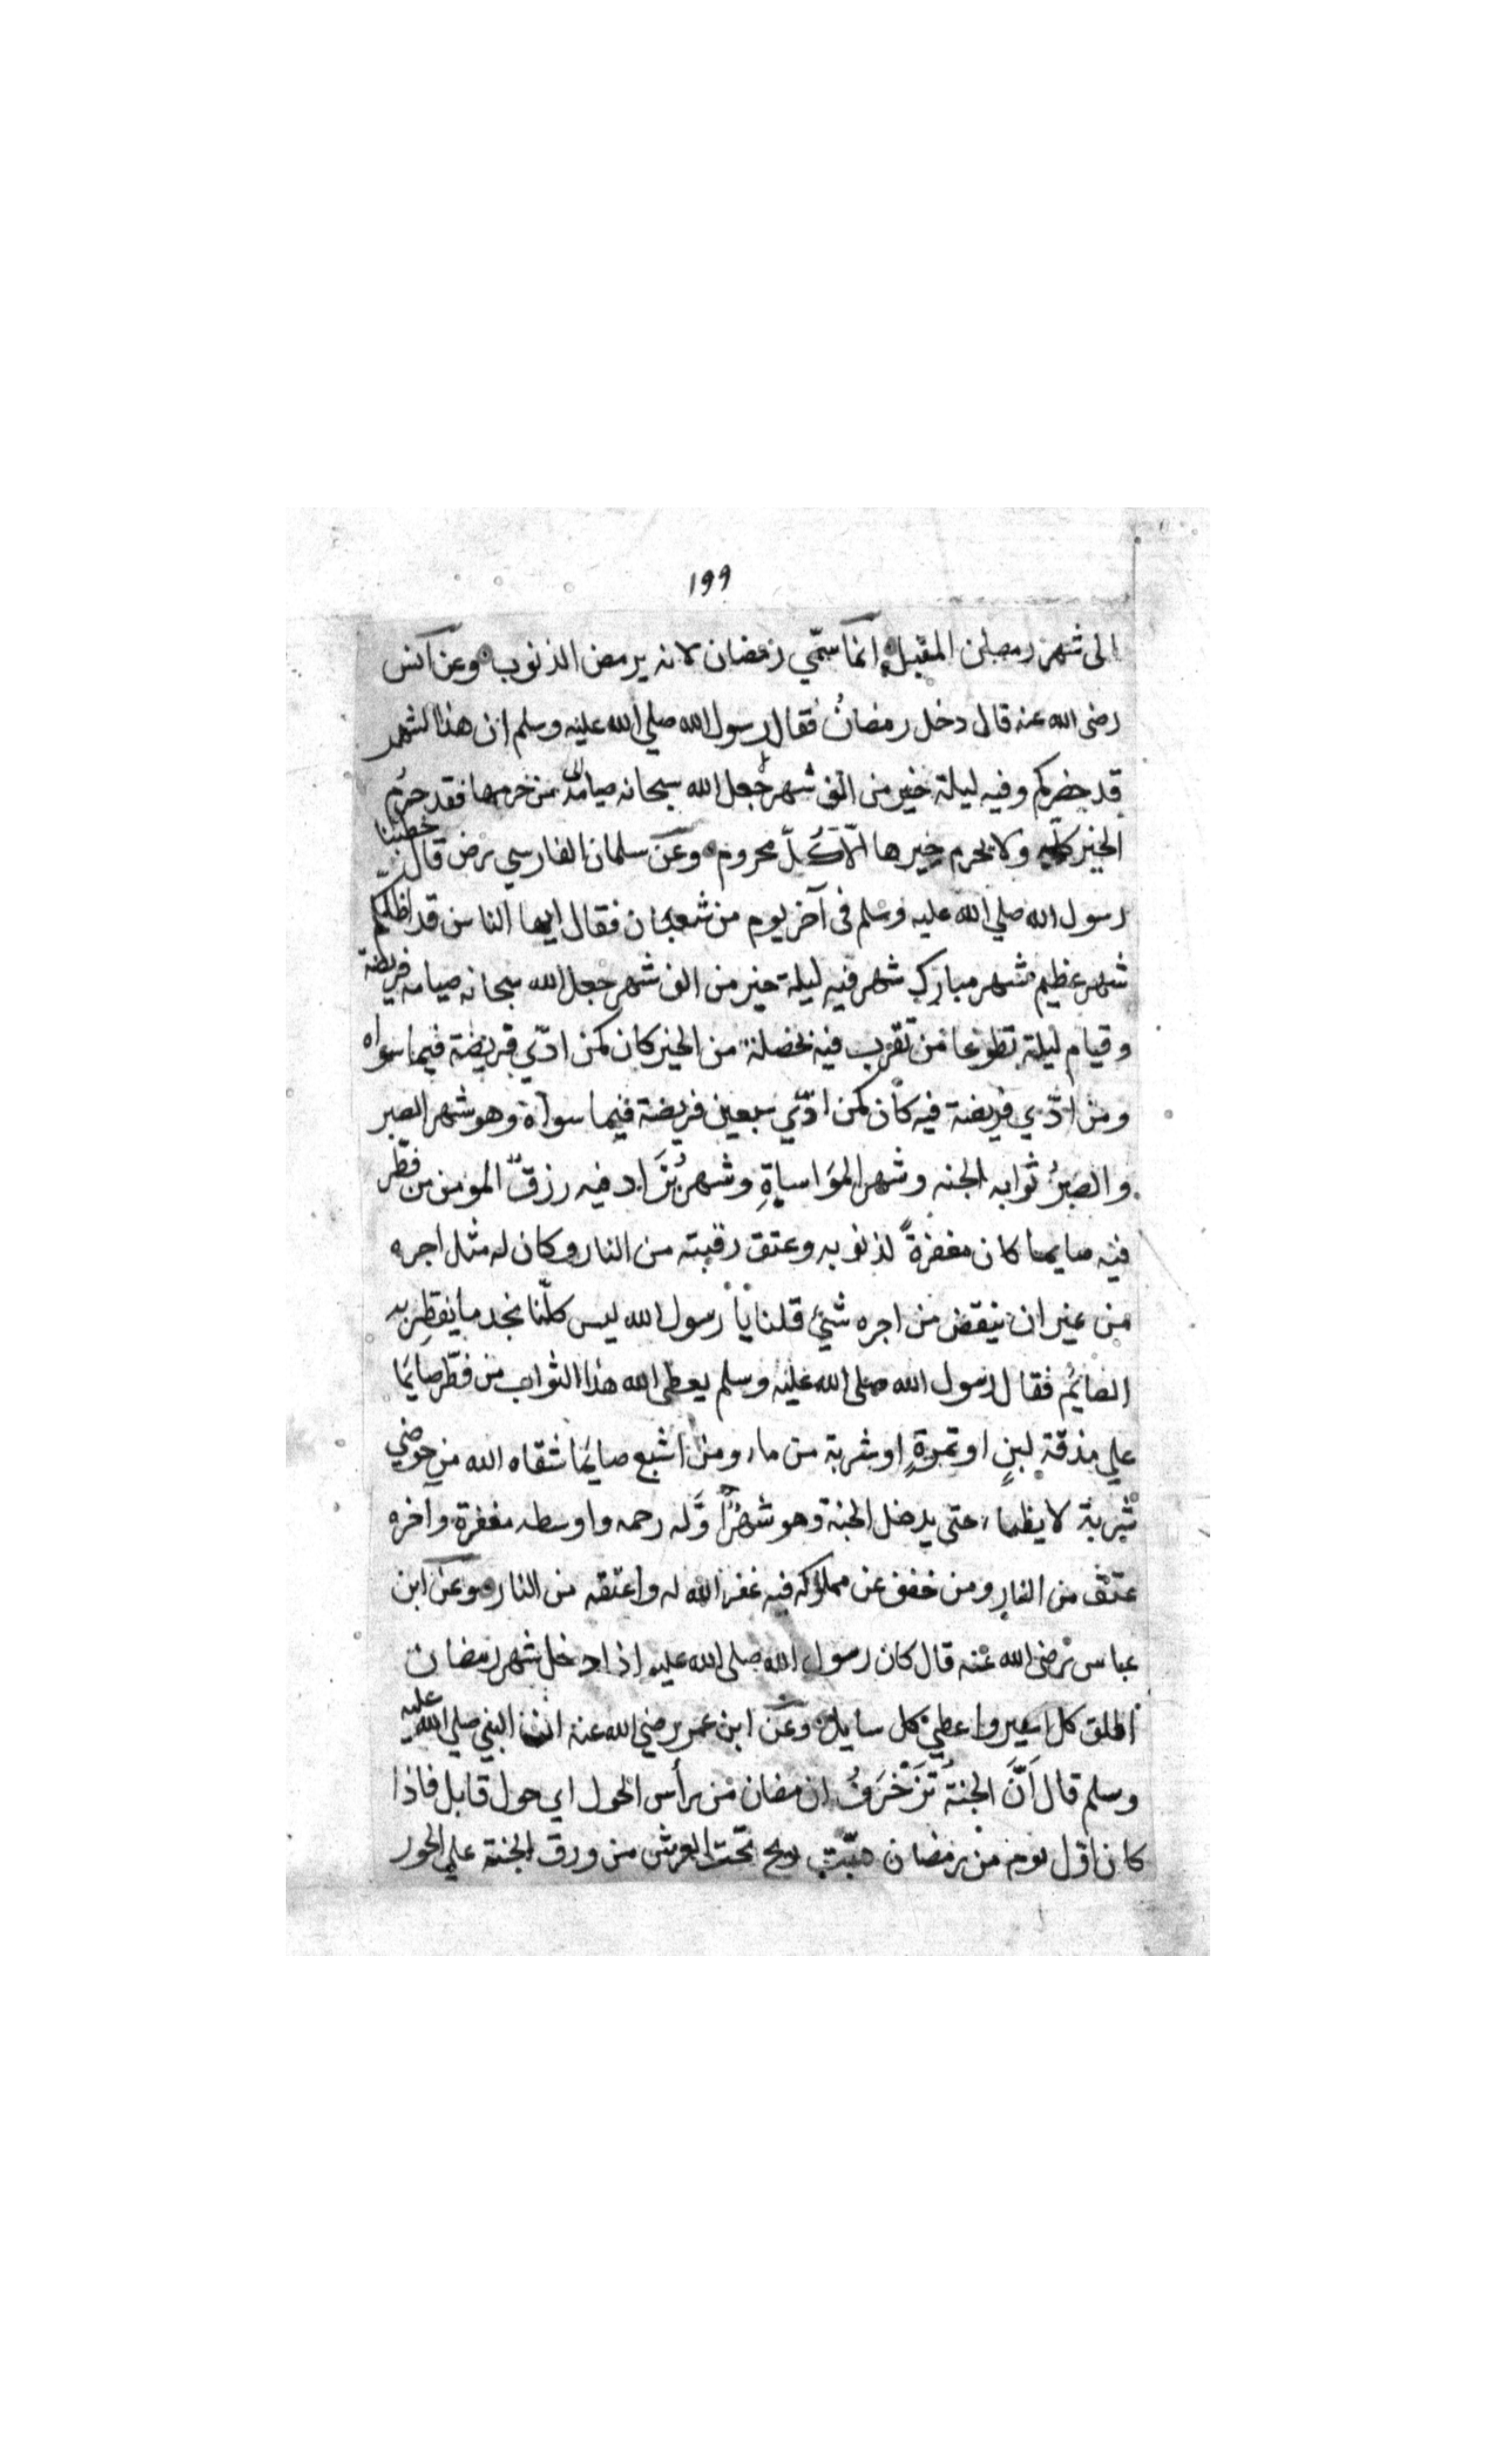 ١٩٩
الى شهر رمضان المقبل انما سمّي رمضان لانه يرمض الذنوب وعن انس
رضى الله عنه قال دخل رمضانُ فقال رسول الله صلي الله عليه وسلم ان هذا الشهر
قد حضركم وفيه ليلة خير من الف شهر جعل الله سبحانه صيامه من حرمها فقد حرُم
الخير كله ولا يحرم خيرها الّا كلّ محروم وعن سلمان الفارسي رض قال خطبنا
رسول الله صلي الله عليه وسلم فى آخر يوم من شعبان فقال ايها الناس قد اظلكم
شهر عظيم شهر مبارك شهر فيه ليلة خير من الف شهر جعل الله سبحانه صيامه فريضة
وقيام ليلة تطوعا من تقرّب فيه بخصلة من الخير كان كمن ادّي فريضة فيما سواه
ومن ادّي فريضة فيه كان كمن ادّي سبعين فريضة فيما سواه وهو شهر الصبر
والصبرُ ثوابه الجنه وشهر المَواساةِ وشهر يُزَاد فيه رزق المومن من فطّر
فيه صايما كان مغفرةً لذنوبه وعتق رقبته من النار وكان له مثل اجره
من غير ان ينقص من اجره شئ قلنا يا رسول الله ليس كلّنا نجد ما يفطِر به
الصايُم فقال رسول الله صلى الله عليه وسلم يعطى الله هذا الثواب من فطّر صايمًا
علي مذقة لبنٍ او تمرةٍ او شربة من ماء ومن اشبع صايمًا سقاه الله من حوضي
شربة لا يظماء حتى يدخل الجنة وهو شهرٌ اوّله رحمه واوسطه مغفرة وآخره
عتق من النار ومن خفف عن مملوكه فيه غفر الله له واعتقه من النار وعن ابن
عباس رضى الله عنه قال كان رسول الله صلى الله عليه اذا دخل شهر رمضان
اطلق كل اسير واعطي كل سايل وعن ابن عمر رضي الله عنه ان النبي صلي الله عليه
وسلم قال اَنَّ الجنةُ تَزَخْرَفُ لرمضان من رأس الحول اي حول قابل فاذا
كان اوّل يوم من رمضان هبّت ريح تحت العرش من ورق الجنة علي الحور